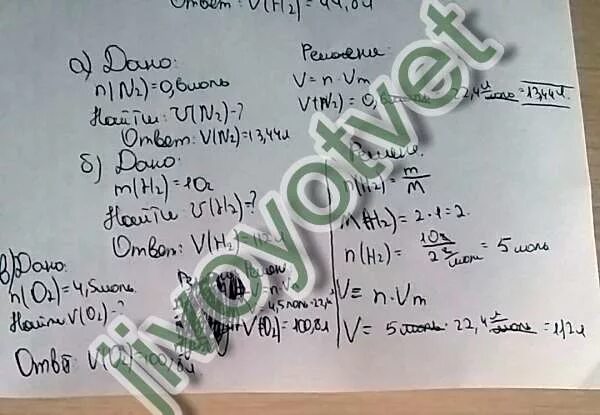 Ответ: V(H₂)=44,8л
а) Дано:
n(N₂)=0,6моль
Найти: V(N₂)-?
Ответ: V(N₂)=13,44л
Решение:
V=n·Vm
V(N₂)=0,6моль · 22,4 л/моль = 13,44л
б) Дано:
m(H₂)=10г
Найти: V(H₂)-?
Ответ: V(H₂)=112л
n(H₂)=m/M
M(H₂)=2·1=2
n(H₂)=10г/2г/моль = 5моль
V= n·Vm
V= 5моль·22,4 л/моль=112л
в) Дано:
n(O₂)=4,5моль
Найти V(O₂)-?
V=n·Vm
=4,5моль·22,4
V(O₂)=100,8л
Ответ: V(O₂)=100,8л
jivoyotvet